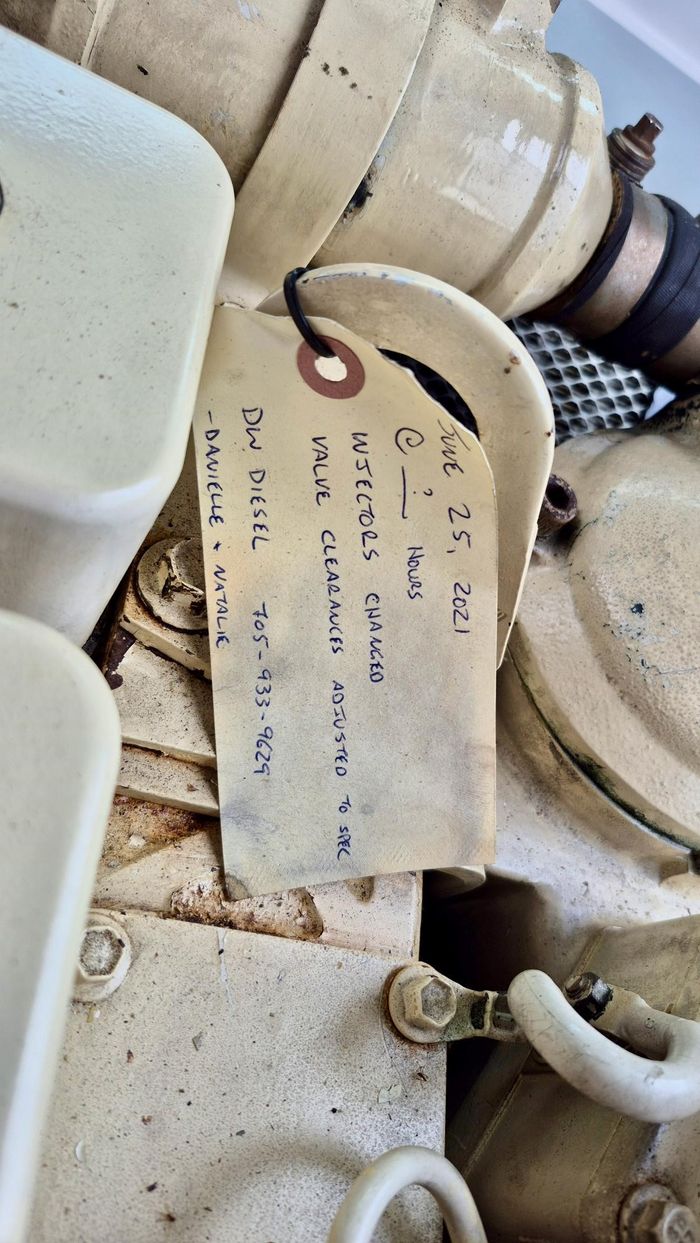 JUNE 25, 2021
@ ? HOURS
INJECTORS CHANGED
VALVE CLEARANCES ADJUSTED TO SPEC
DW DIESEL 705-933-9629
-DANIELLE + NATALIE